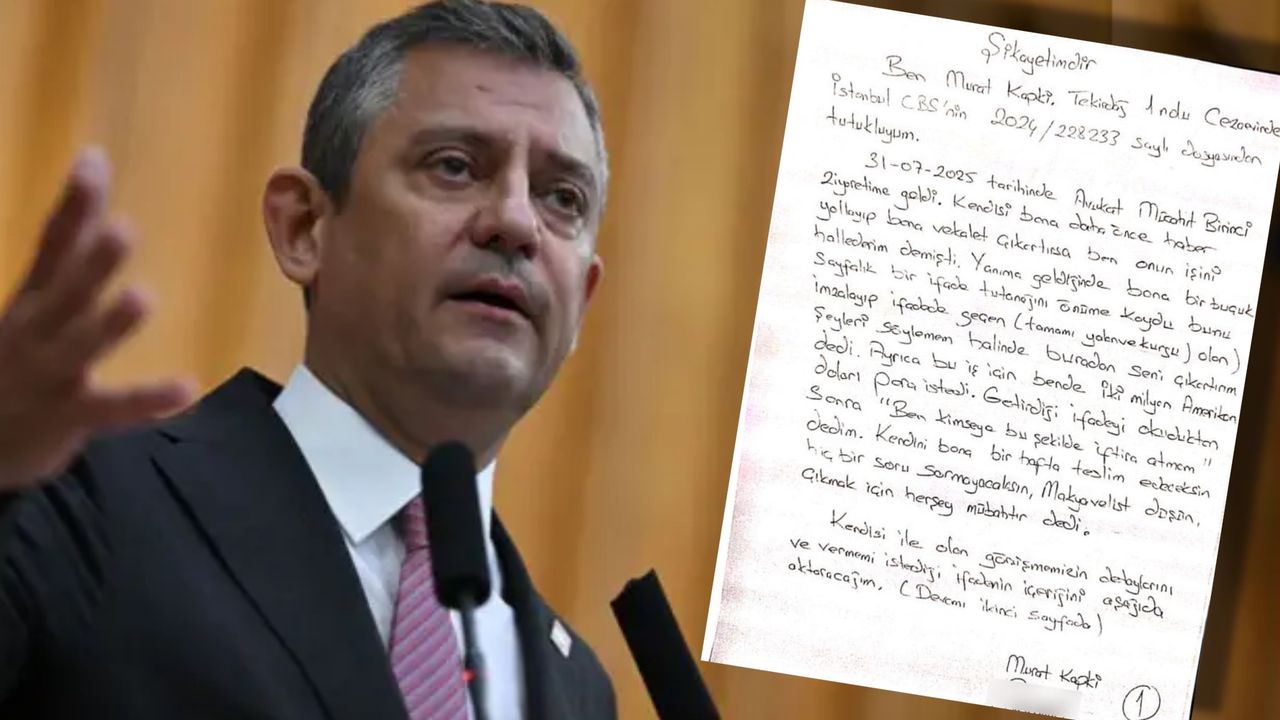 Şikayetimdir
Ben Murat Kapki. Tekirdağ 1 nolu Cezaevinde
İstanbul CBS'nin 2024/228233 sayılı dosyasından
tutukluyum.
31-07-2025 tarihinde Avukat Mücahit Birinci
ziyaretime geldi. Kendisi bana daha önce haber
yollayıp bana vekalet çıkartırsa ben onun işini
hallederim demişti. Yanıma geldiğinde bana bir buçuk
sayfalık bir ifade tutanağını önüme koydu bunu
imzalayıp ifadede geçen (tamamı yalan ve kurgu) olan)
şeyleri söylemen halinde buradan seni çıkartırım
dedi. Ayrıca bu iş için bende iki milyon Amerikan
doları para istedi. Getirdiği ifadeyi okuduktan
sonra "Ben kimseye bu şekilde iftira atmam"
dedim. Kendini bana bir hafta teslim edeceksin
hiç bir soru sormayacaksın, Makyavelist düşün,
çıkmak için herşey mübahtır dedi.
Kendisi ile olan görüşmemizin detaylarını
ve vermemi istediği ifadenin içeriğini aşağıda
aktaracağım. (Devamı ikinci sayfada)
Murat Kapki
1